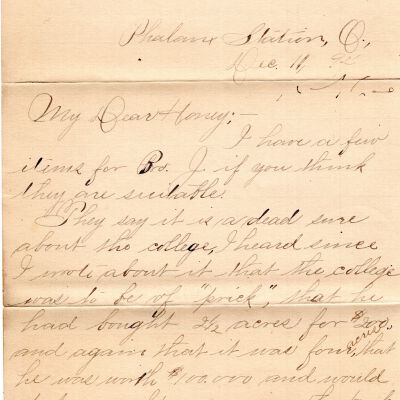 Phalanx Station, O.,
Dec. 11, 92
My Dear Honey;–
I have a few
items for Bro. J. if you think
they are suitable.
They say it is a dead sure
about the college, I heard since
I wrote about it that the college
was to be of "brick", that he
had bought 2½ acres for $200.
and again that it was four acres, that
he was worth $100.000 and would